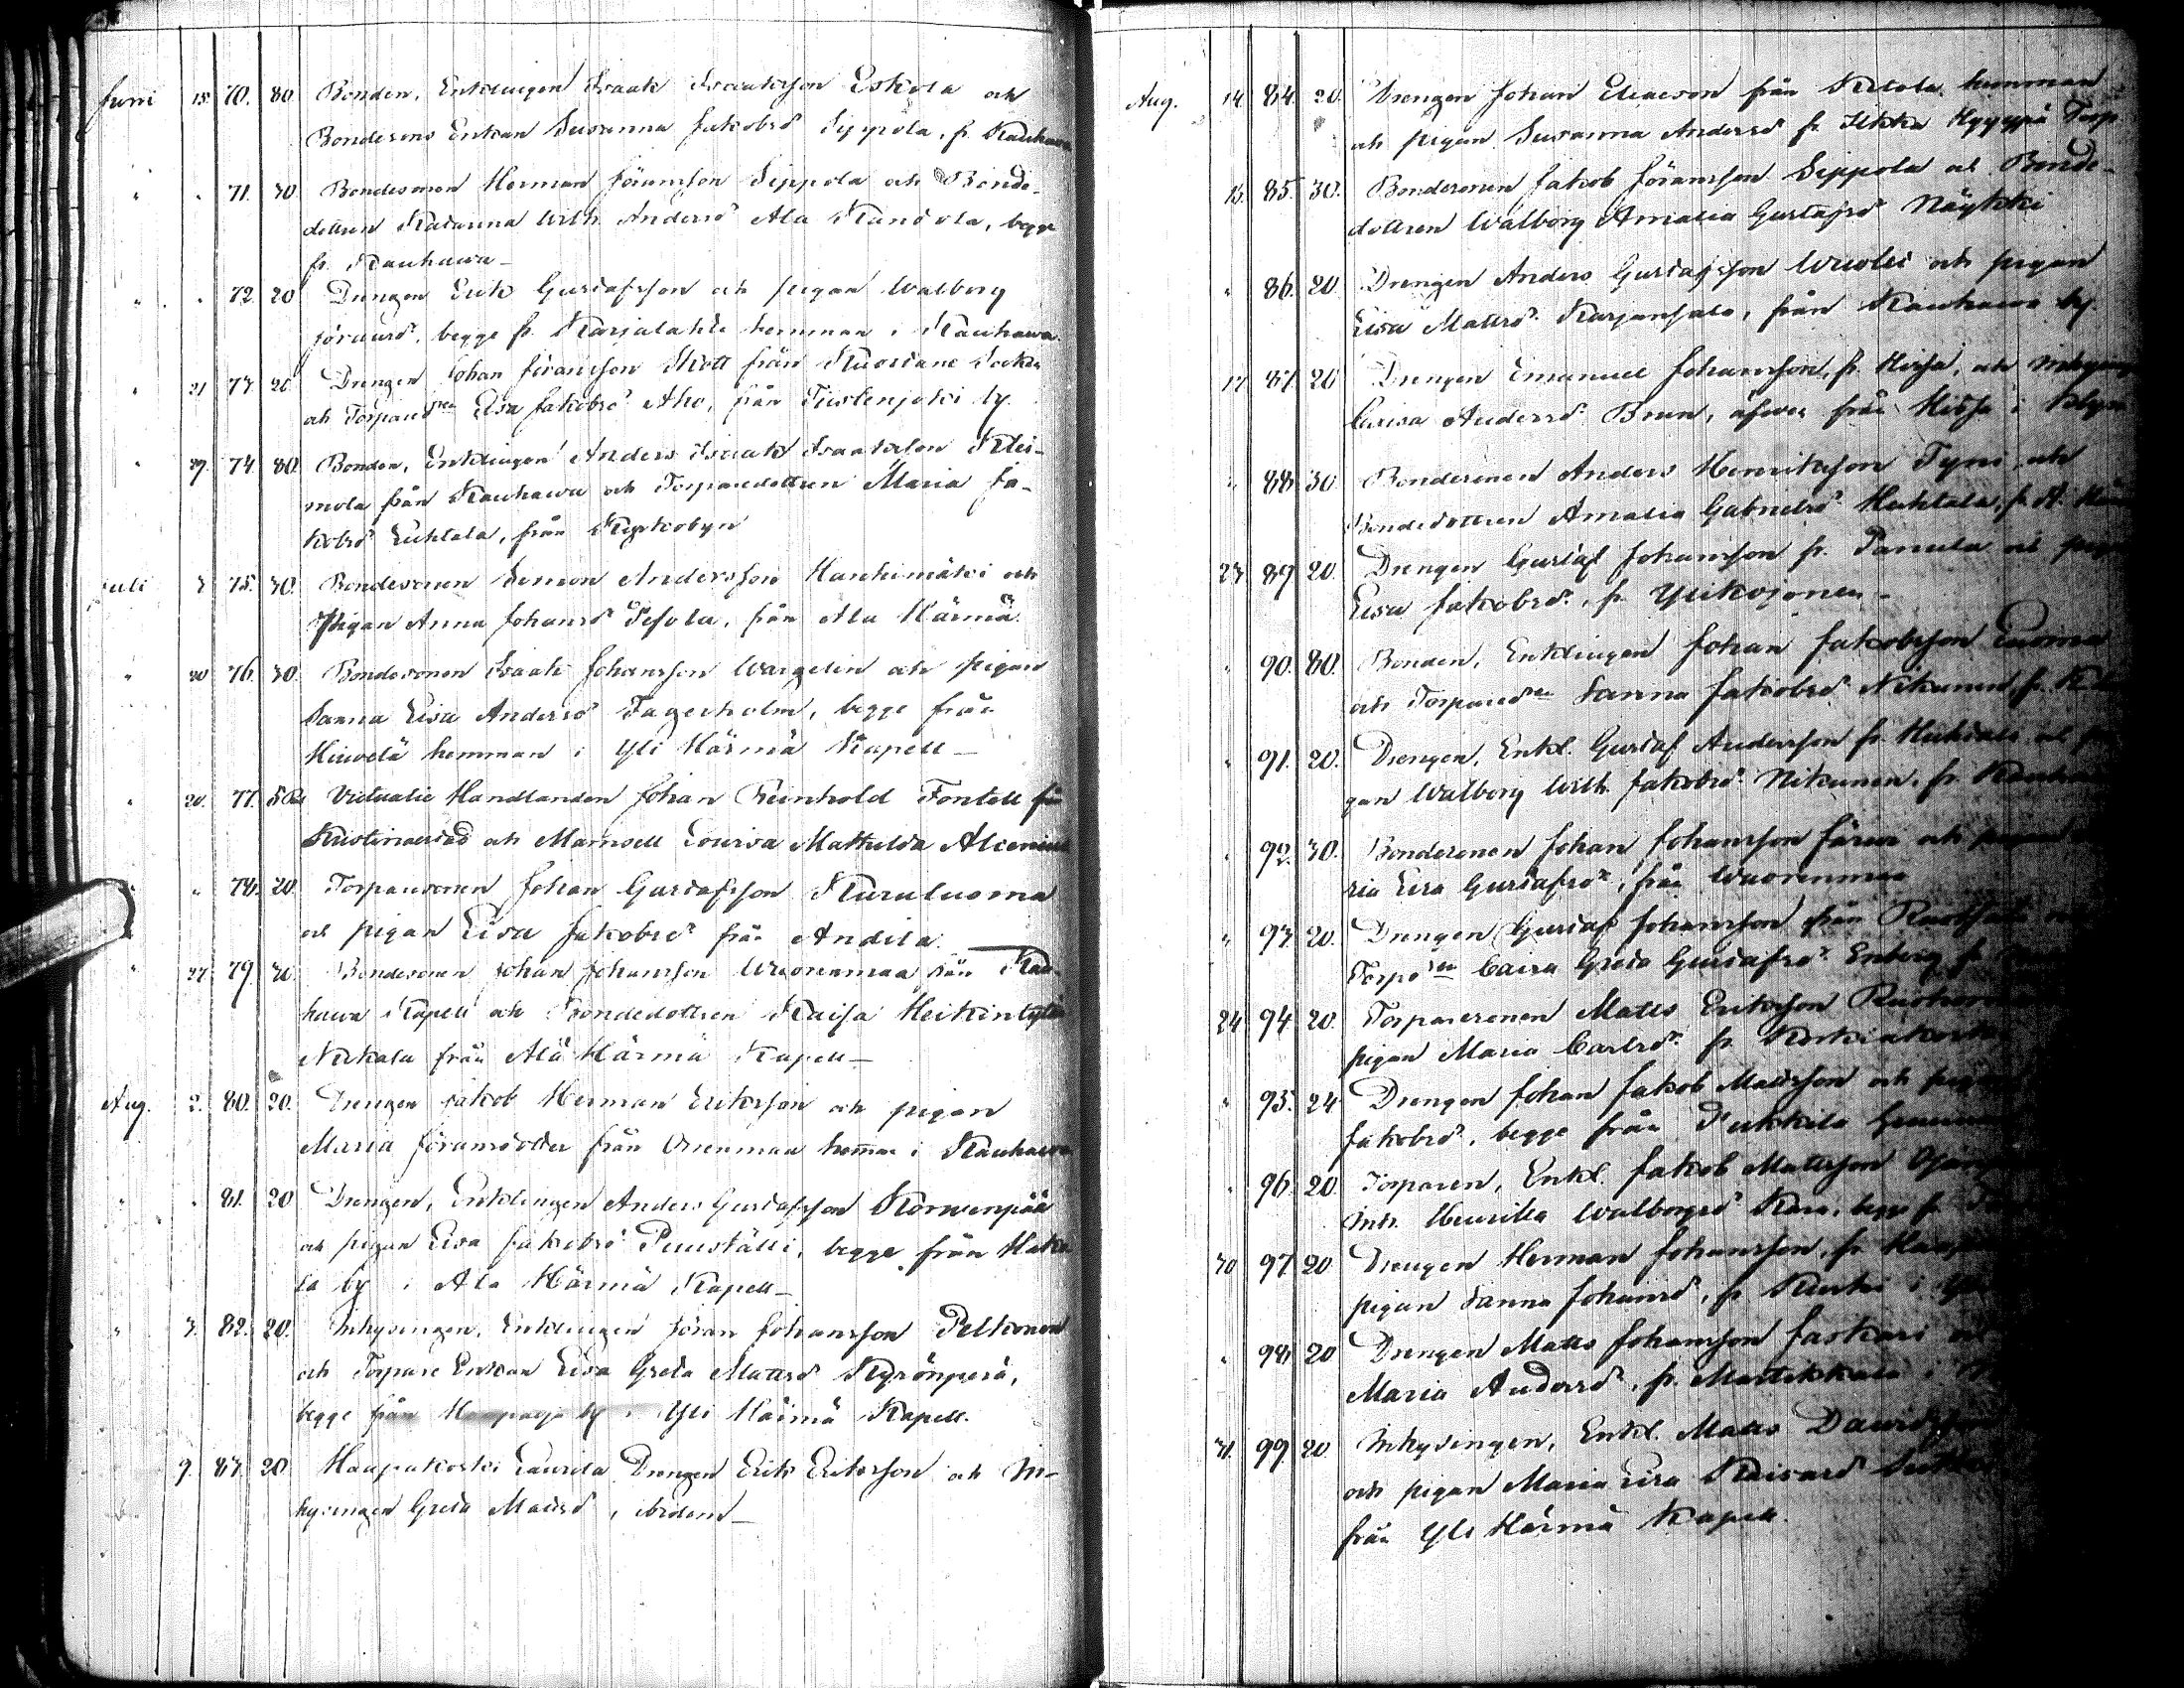 Juni 15. 70. 80 Bonden, Enklingen Isaak Isaaksson Eskola och
Bondesons Enkan Susanna Jakobsd Sippola, fr. Kauhava
" " 71. 30 Bondesonen Herman Jöransson Sippola och Bonde-
dottren Katarina Wilh. Andersd Ala Kandola, begge
fr. Kauhawa -
" " 72 20 Drengen Erik Gustafsson och pigan Walborg
Jöransd, begge fr. Karjalahti hemman i Kauhawa.
" 21 73 20 Drengen Johan Jöransson Skott från Kuortane Socken
och Torpared:en Lisa Jakobsd Aho, från Tiistenjoki by.
" 29. 74 80. Bonden, Enklingen Anders Isaak Isaaksson Klei-
mola från Kauhawa och Torparedottren Maria Ja-
kobsd Luhtala, från Kyrkobyn
Juli 3 75. 30. Bondesonen Simon Andersson Hanhimäki och
Pigan Anna Johansd Pesola, från Ala Härmä.
" 20 76. 30. Bondesonen Isaak Johansson Wargelin och pigan
Sanna Lisa Andersd Fagerholm, begge från
Hiivelä hemman i Yli Härmä Kapell -
" 20. 77. Victualie Handlanden Johan Reinhold Fontell från
Kristinestad och Mamsell Lovisa Mathilda Alcenius
" " 78. 20 Torparesonen Johan Gustafsson Kuruluoma
och pigan Lisa Jakobsd från Andila.
" 27. 79. 30 Bondesonen Johan Johansson Wuorenmaa från Kau-
hawa Kapell och Bondedottren Kaisa Heikintytär
Niskala från Ala Härmä Kapell -
Aug. 2. 80. 20. Drengen Jakob Herman Eriksson och pigan
Maria Jöransdotter från Orrenmaa hemman i Kauhawa
" " 81. 20 Drengen, Enklingen Anders Gustafsson Korwenpää
och pigan Lisa Jakobsd Puuställi, begge från Hako-
la by i Ala Härmä Kapell -
" 3. 82. 20. Inhysingen, Enklingen Jöran Johansson Pelkonen
och Torpare Enkan Lisa Greta Mattsd Kyrönperä,
begge från by i Yli Härmä Kapell.
9. 83. 20 Haapakoski Laurila Drengen Erik Eriksson och In-
hysingen Greta Mattsd, ibidem -
Aug. 14 84. 20. Drengen Johan Eliasson från Kitola hemman
och pigan Susanna Andersd fr. Ilkka Torp
15. 85. 30. Bondesonen Jakob Jöransson Seppola och Bonde-
dottren Walborg Amalia Gustafsd Näykki
" 86. 20 Drengen Anders Gustafsson Wuolei och pigan
Lisa Mattsd Karjanlala, från Kauhawa by.
17. 87. 20 Drengen Emanuel Johansson, fr. Hirsi, och Inhysinge
Caisa Andersd Brun, äfven från i
" 88. 30. Bondesonen Anders Henriksson Tyni och
Bondedottren Amalia Gabrielsd Huhtala, fr. A. Härmä
23 89 20. Drengen Gustaf Johansson fr. Panula och pigan
Lisa Jakobsd, fr. Ylikojonen -
" 90. 80. Bonden, Enklingen Johan Jakobsson Luoma
och Torpared:en Sanna Jakobsd Nikunen, fr.
" 91. 20. Drengen, Enkl. Gustaf Andersson fr. Huhtala och pi-
gan Walborg Wilh. Jakobsd Nikunen, fr. Kauhawa
" 92. 30. Bondesonen Johan Johansson Järwi och
ria Lisa Gustafsd, från Wuorenmaa
" 93 20. Drengen Gustaf Johansson från
Torpd:en Caisa Greta Gustafsd Enberg fr.
24 94 20. Torparesonen Matts Eriksson
pigan Maria Carlsd fr. Koskiakoski
" 95. 24 Drengen Johan Jakob Mattsson och pigan
Jakobsd, begge från Pukkila hemman
" 96. 20. Torparen, Enkl. Jakob Mattsson
Inh. Henrika Walborgsd begge fr.
30 97 20 Drengen Herman Johansson, fr.
pigan Sanna Johansd, fr. i
" 98. 20 Drengen Matts Johansson Jaskari och
Maria Andersd, fr. Mattikkala i
31. 99. 20 Inhysingen, Enkl. Matts Davidsson
och pigan Maria Lisa
från Yli Härmä Kapell.